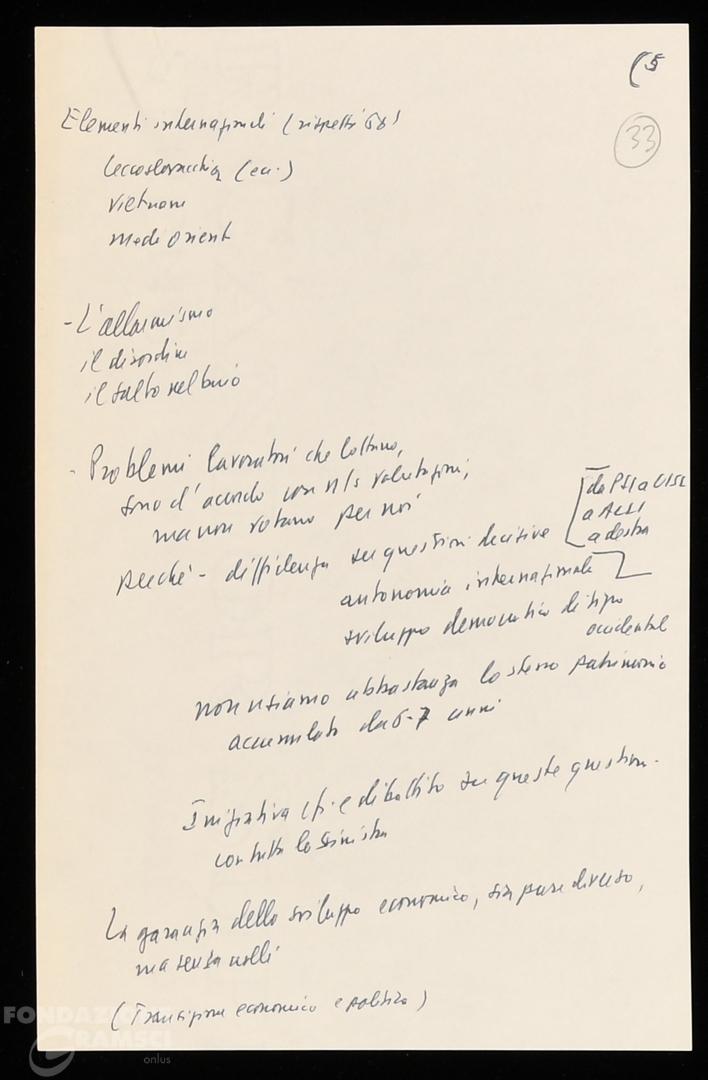 (5
33
Elementi internazionali (rispetto 68)
Cecoslovacchia (ecc.)
Vietnam
Medio Oriente
- L'allarmismo
il disordine
il salto nel buio
- Problemi lavoratori che lottano,
sono d'accordo con n/s valutazioni,
ma non votano per noi
perché - diffidenza su questioni decisive
da PSI a CISL
a ACLI
a destra
autonomia internazionale
sviluppo democratico di tipo
occidentale
non usiamo abbastanza lo stesso patrimonio
accumulato da 6-7 anni
Iniziativa e dibattito su queste questioni
con tutta la sinistra
La garanzia dello sviluppo economico, sia pure diverso,
ma senza crolli
(Transizione economica e politica)
FONDAZIONE
GRAMSCI
onlus